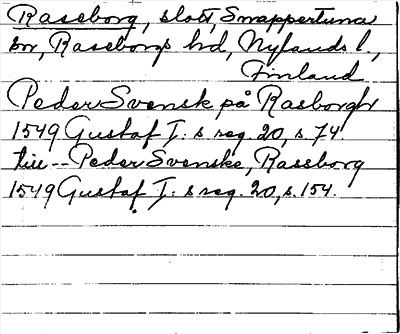 Raseborg, slott, Snappertuna
sn, Raseborgs hd, Nylands l.,
Finland
Peder Svensk på Rasborgh
1549 Gustaf I: s reg. 20, s. 74.
till -- Peder Svenske, Rassborg
1549 Gustaf I: s reg. 20, s. 154.